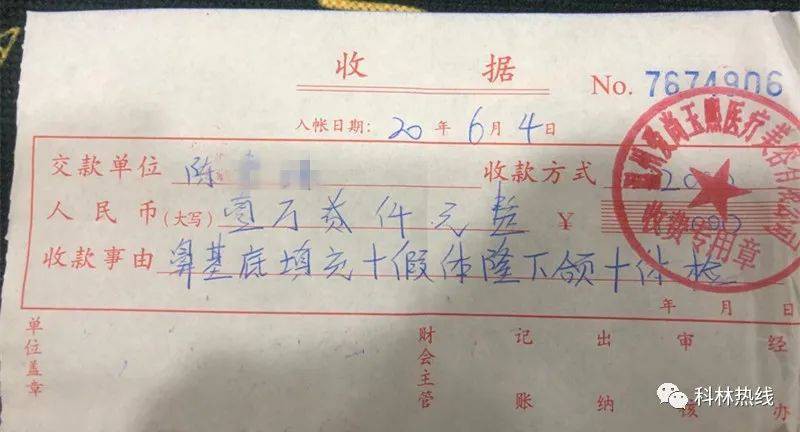 收据
No. 7674906
入帐日期: 20 年 6 月 4 日
交款单位 陈 收款方式
人民币(大写) 壹万贰仟元整 ¥
收款事由 鼻基底填充+假体隆下颌+体检
年 月 日
单位盖章 财会主管 记账 出纳 审核 经办
医疗美容
收费专用章
科林热线